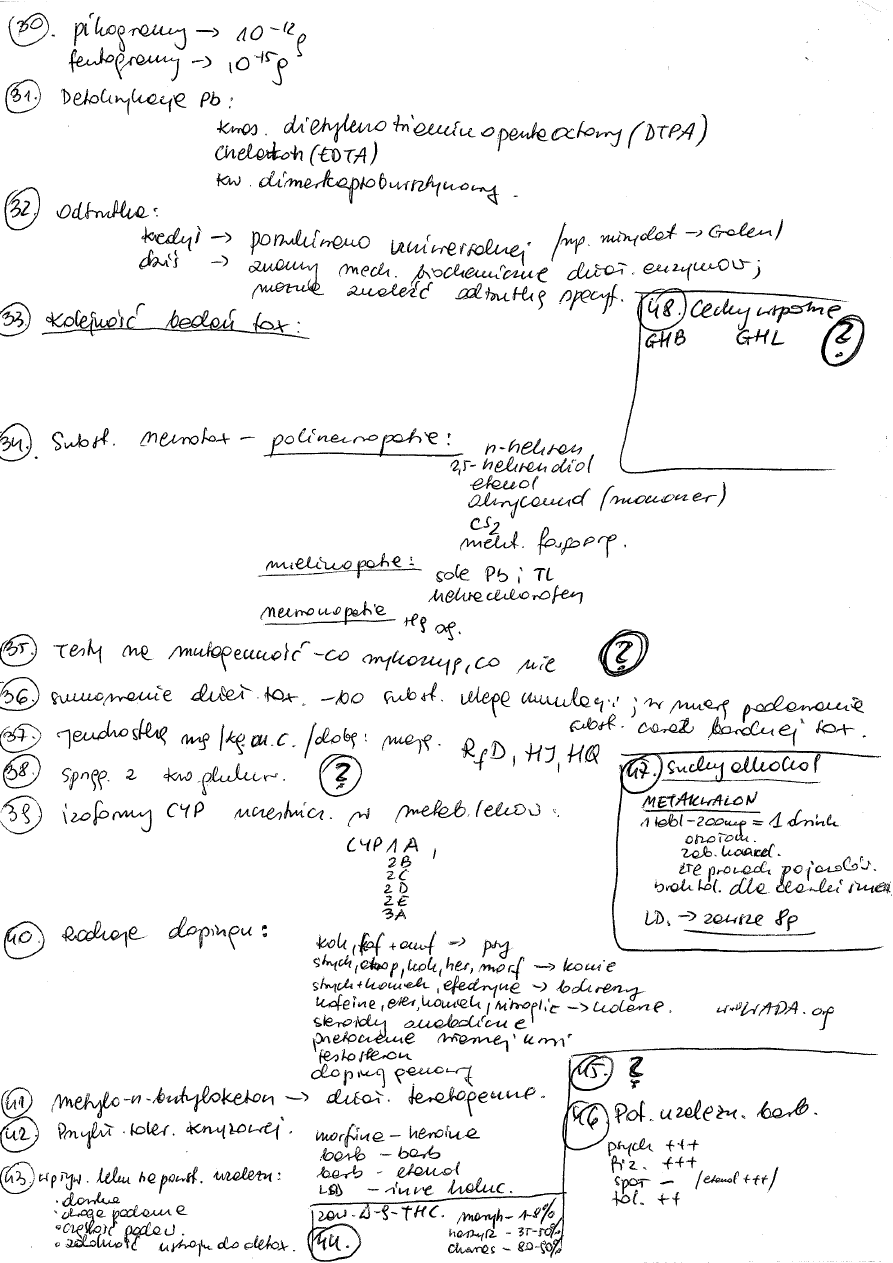 30. pikogramy → 10⁻¹² g
femtogramy → 10⁻¹⁵ g
31. Detoksykacja Pb:
kwas. dietylenotriaminopentaoctowy (DTPA)
Chelaton (EDTA)
kw. dimerkaptobursztynowy.
32. Odtrutka:
kiedyś → poszukiwano uniwersalnej /np. mirydat → Galen/
dziś → znamy mech. biochemiczne dział. enzymów;
można znaleźć odtrutkę specyf.
33. Kolejność badań tox:
48. Cechy wspólne
GHB GHL ?
34. Subst. neurotox – polineuropatie:
n-heksan
2,5-heksandiol
etanol
akrylamid (monomer)
CS₂
zwiet. fosfoorg.
mielinopatie:
sole Pb i TL
heksachlorofen
neuronopatie
Hg org.
35. Testy na mutagenność – co wykazują, co nie ?
36. sumowanie dział. tox. – bo subst. ulega kumulacji; w miarę podawania
subst. coraz bardziej tox.
37. Jednostkę mg/kg m.c./dobę: mają. RfD, HI, HQ
38. Sprzęg. z kw. glukur. ?
39. izoformy CYP uczestnicz. w metab. leków:
CYP 1A,
2B
2C
2D
2E
3A
47. Suchy alkohol
METAKWALON
1 tabl – 200mg = 1 drink
zab. koord.
złe prowadz. pojazdów.
LD. → zawsze 8g
40. Rodzaje dopingu:
kok, kof + amf → psy
strych, atrop, kok, her, morf → konie
strych + koniak, efedryna → bokserzy
kofeina, eter, koniak, nitroglic → kolarze. www.WADA.org
steroidy anaboliczne
przetaczanie własnej krwi
testosteron
doping genowy
41. metylo-n-butyloketon → dział. teratogenne.
42. Przykł. toler. krzyżowej.
morfina – heroina
barb – barb
barb – etanol
LSD – inne haluc.
43. wpływ. leku na powst. uzależn:
• dawka
• droga podania
• częstość podaw.
• zdolność ustroju do detox.
44.
zaw. Δ-9-THC. maryh – 1-8%
haszysz – 35-50%
charas – 80-90%
45. ?
46. Pot. uzależn. barb.
psych +++
fiz. +++
społ – /etanol +++/
tol. ++